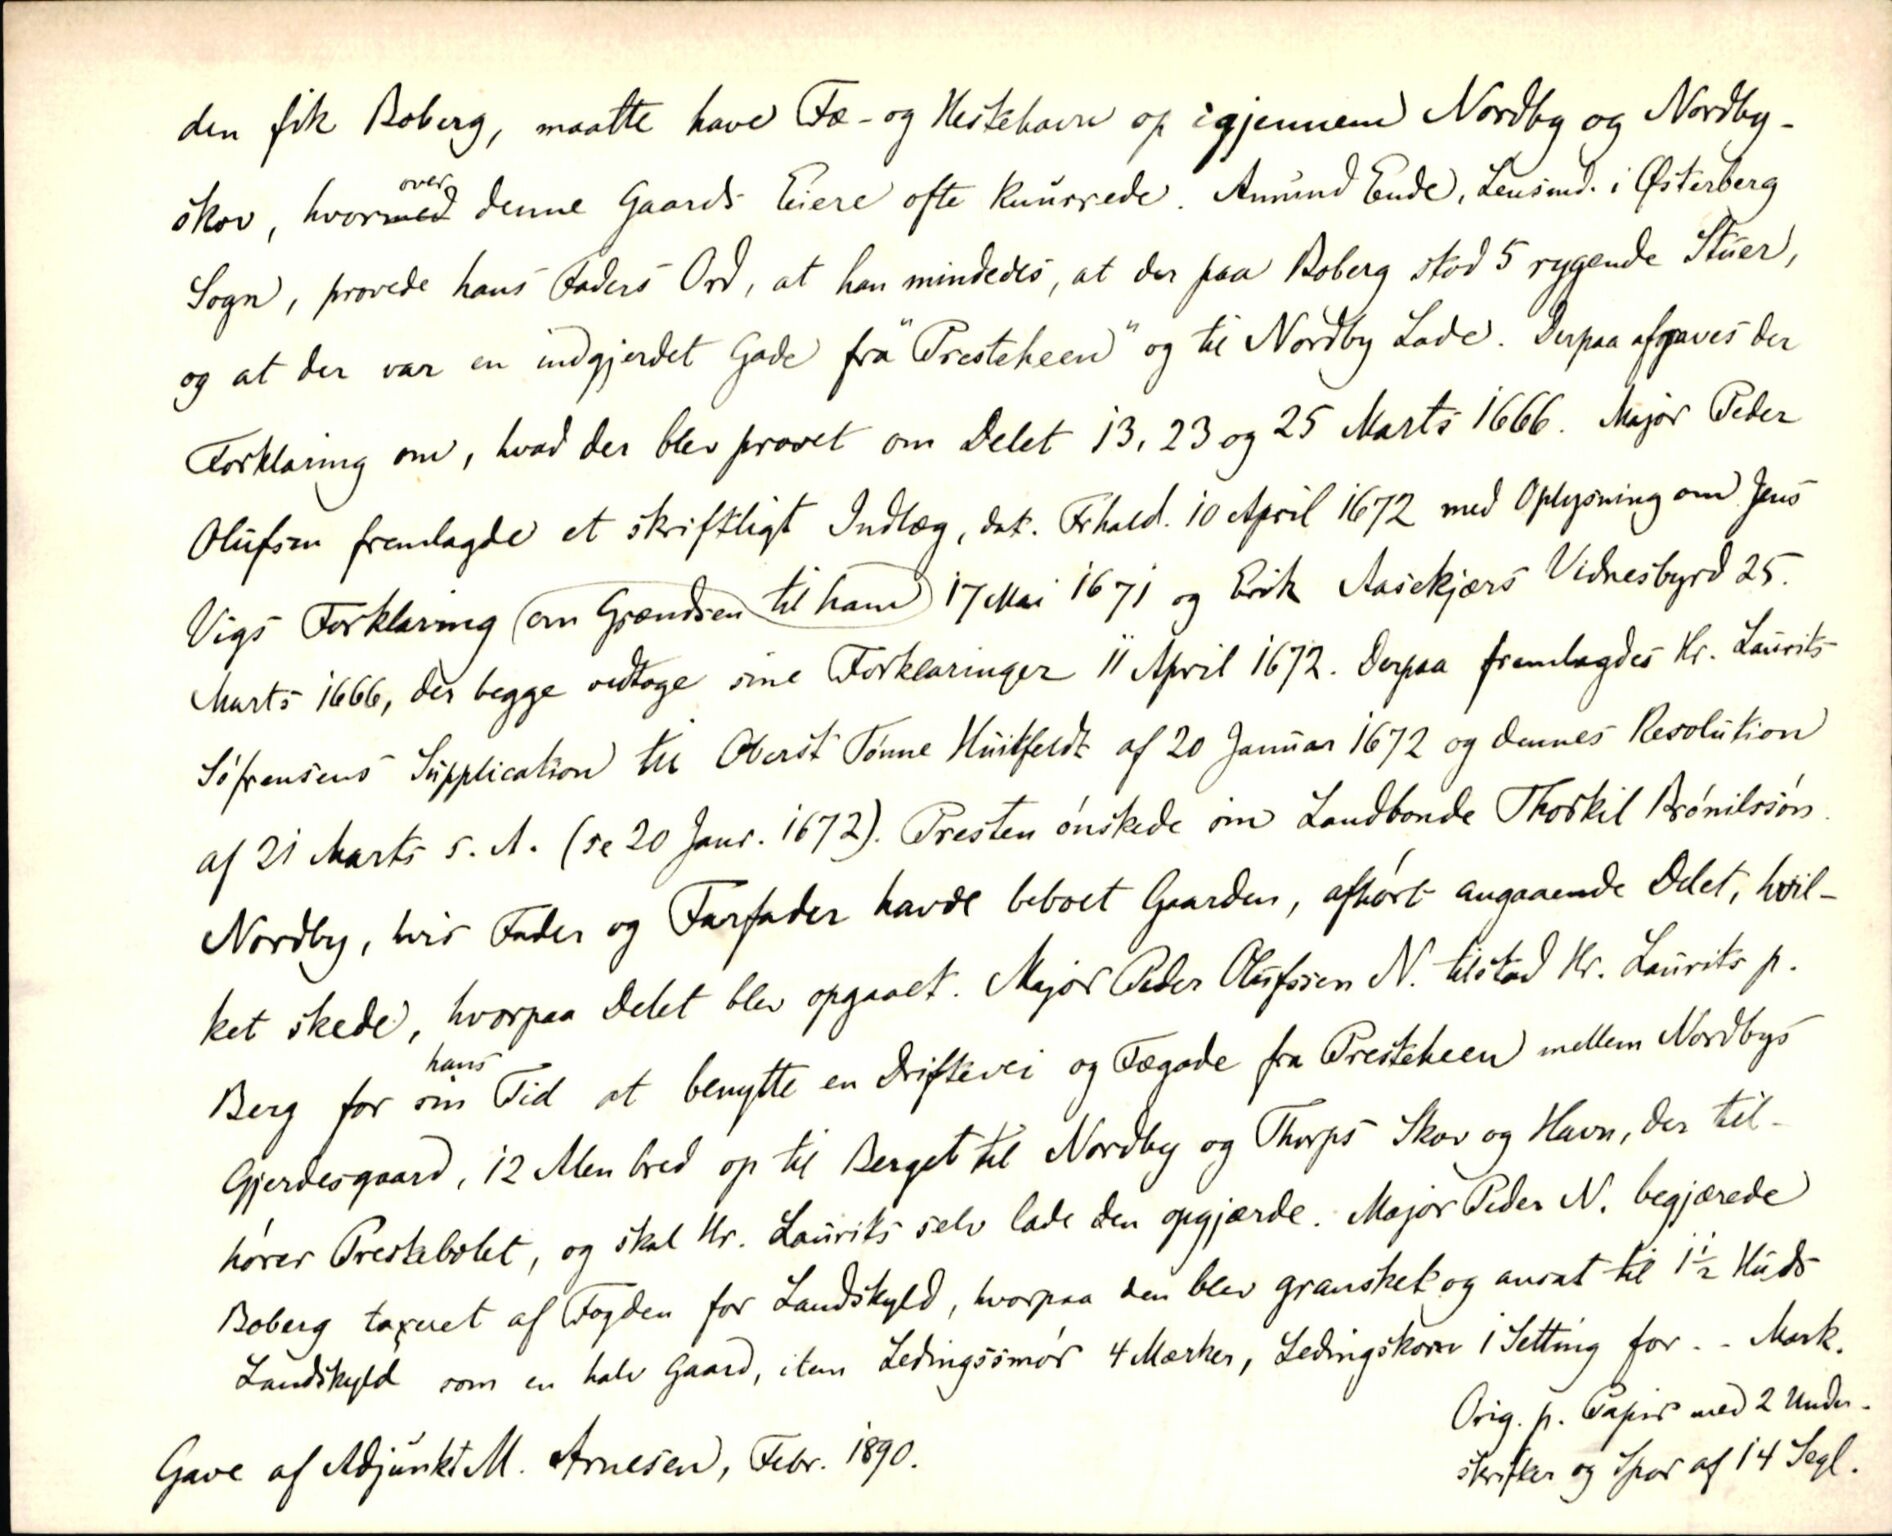 den fik Boberg, maatte have Fæ- og Hestehavn op igjennem Nordby og Nordby-
skov, hvormed over denne Gaards Eiere ofte knurrede. Amund Ende, Lensmd. i Østerberg
Sogn, provede hans Faders Ord, at han mindedes, at der paa Boberg stod 5 rygende Stuer,
og at der var en indgjerdet Gade fra "Presteheen" og til Nordby Lade. Derpaa afgaves der
Forklaring om, hvad der blev provet om Delet 13, 23 og 25 Marts 1666. Major Peder
Olufsen fremlagde et skriftligt Indlæg, dat. Frhald. 10 April 1672 med Oplysning om Jens
Vigs Forklaring (om Grændsen til ham) 17 Mai 1671 og Erik Aasekjærs Vidnesbyrd 25.
Marts 1666, der begge vedtoge sine Forklaringer 11 April 1672. Derpaa fremlagdes Hr. Laurits
Söfrensens Supplication til Oberst Tönne Huitfeldt af 20 Januar 1672 og dennes Resolution
af 21 Marts s. A. (se 20 Janr. 1672). Presten önskede sin Landbonde Thorkil Brönilssön
Nordby, hvis Fader og Farfader havde beboet Gaarden, afhört angaaende Delet, hvil-
ket skede, hvorpaa Delet blev opgaaet. Major Peder Olufssen N. tilstod Hr. Laurits p.
Berg for sin hans Tid at benytte en Driftevei og Fægade fra Presteheen mellem Nordbys
Gjerdesgaard, 12 Alen bred op til Berget til Nordby og Thorps Skov og Havn, der til-
hörer Prestebolet, og skal Hr. Laurits selv lade den opgjærde. Major Peder N. begjærede
Boberg taxeret af Fogden for Landskyld, hvorpaa den blev gransket og ansat til 1½ Huds
Landskyld som en halv Gaard, item Ledingssmör 4 Mærker, Ledingskorn 1 Setting for - - Mark.
Orig. p. Papir med 2 Under-
skrifter og Spor af 14 Segl.
Gave af Adjunkt M. Arnesen, Febr. 1890.